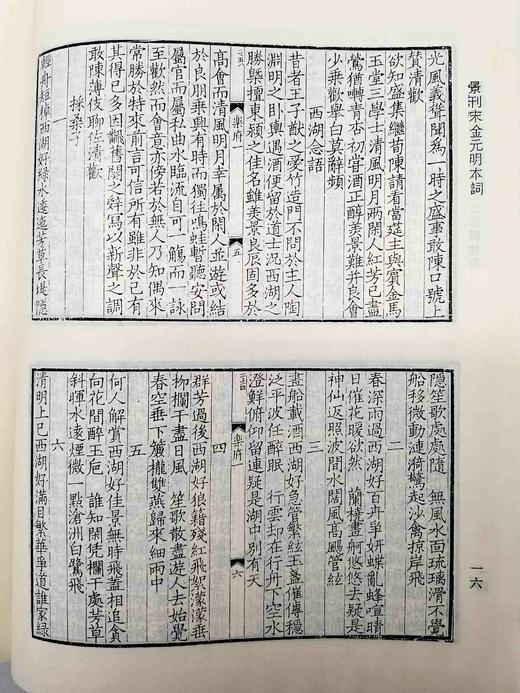 景刊宋金元明本詞
光風義聲聞爲一時之盛事敢陳口號上
贊清歡
欲知盛集繼荀陳請看當筵主與賓金馬
玉堂三學士清風明月兩閑人紅芳已盡
鶯猶囀青杏初嘗酒正醇美景難并良會
少乘歡舉白莫辭頻
西湖念語
昔者王子猷之愛竹造門不問於主人陶
淵明之卧輿遇酒便留於道士況西湖之
勝槩擅東潁之佳名雖美景良辰固多於
樂府一
五
高會而清風明月幸屬於閑人並遊或結
於良朋乗興有時而獨徃鳴蛙暫聽安問
屬官而屬私曲水臨流自可一觴而一詠
至歡然而會意亦傍若於無人乃知偶來
常勝於特來前言可信所有雖非於己有
其得已多因飜舊闋之辭寫以新聲之調
敢陳薄伎聊佐清歡
採桑子
輕舟短棹西湖好綠水逶迤芳草長堤隱
隱笙歌處處隨 無風水面琉璃滑不覺
船移微動漣漪驚起沙禽掠岸飛
二
春深雨過西湖好百卉爭妍蝶亂蜂喧晴
日催花暖欲然 蘭橈畫舸悠悠去疑是
神仙返照波間水闊風高颺管絃
三
畫船載酒西湖好急管繁絃玉盞催傳穩
泛平波任醉眠 行雲却在行舟下空水
澄鮮俯仰留連疑是湖中別有天
樂府一
六
四
群芳過後西湖好狼籍殘紅飛絮濛濛垂
柳攔干盡日風 笙歌散盡遊人去始覺
春空垂下簾櫳雙燕歸來細雨中
五
何人解賞西湖好佳景無時飛蓋相追貪
向花間醉玉巵 誰知閑凭欄干處芳草
斜暉水遠煙微一點滄洲白鷺飛
六
清明上巳西湖好滿目繁華爭道誰家綠
一六